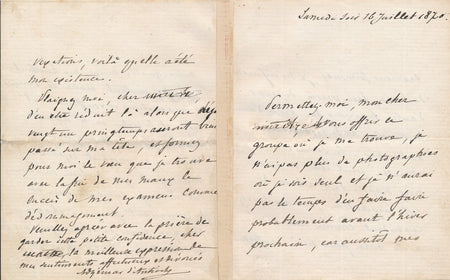 Samedi soir 16 Juillet 1870.
Permettez moi, mon cher
vous offrir ce
groupe où je me trouve, je
n'ai pas plus de photographies
où je sois seul et je n'aurai
pas le temps d'en faire faire
probablement avant l'hiver
prochain, car aussitôt mes
vexations, voilà quelle a été
mon existence.
Plaignez moi, cher
d'en être réduit là alors que déjà
vingt un printemps auront
passé sur ma tête, et formez
pour moi le vœu que je trouve
avec la fin de mes maux le
succès de mes examens comme
dédommagement.
Veuillez agréer avec la prière de
garder cette petite confidence, cher
la meilleure expression de
mes sentiments affectueux et dévoués